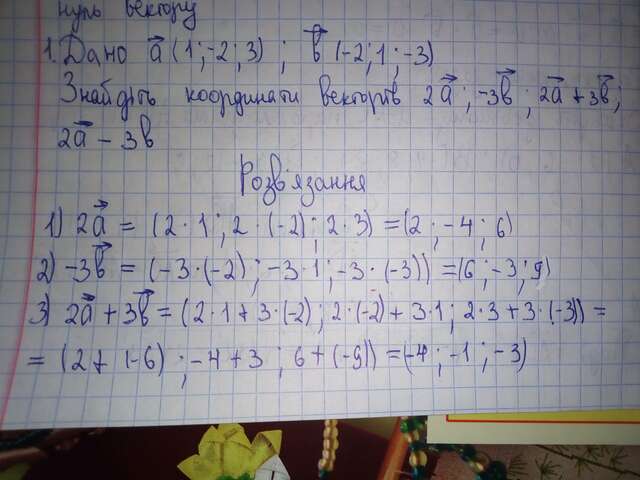 нуль вектору
1. Дано a⃗ (1; -2; 3) ; b⃗ (-2; 1; -3)
Знайдіть координати векторів 2a⃗ ; -3b⃗ ; 2a⃗ + 3b⃗ ;
2a⃗ - 3b
Розв'язання
1) 2a⃗ = (2·1 ; 2·(-2) ; 2·3) = (2 ; -4 ; 6)
2) -3b⃗ = (-3·(-2) ; -3·1 ; -3·(-3)) = (6 ; -3 ; 9)
3) 2a⃗ + 3b⃗ = (2·1 + 3·(-2) ; 2·(-2) + 3·1 ; 2·3 + 3·(-3)) =
= (2 + (-6) ; -4 + 3 ; 6 + (-9)) = (-4 ; -1 ; -3)